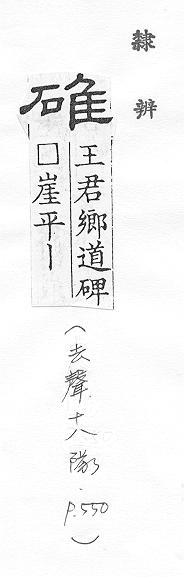 隸辨
碓
王君鄉道碑
□崖平丨
(去聲十八隊.p.550)